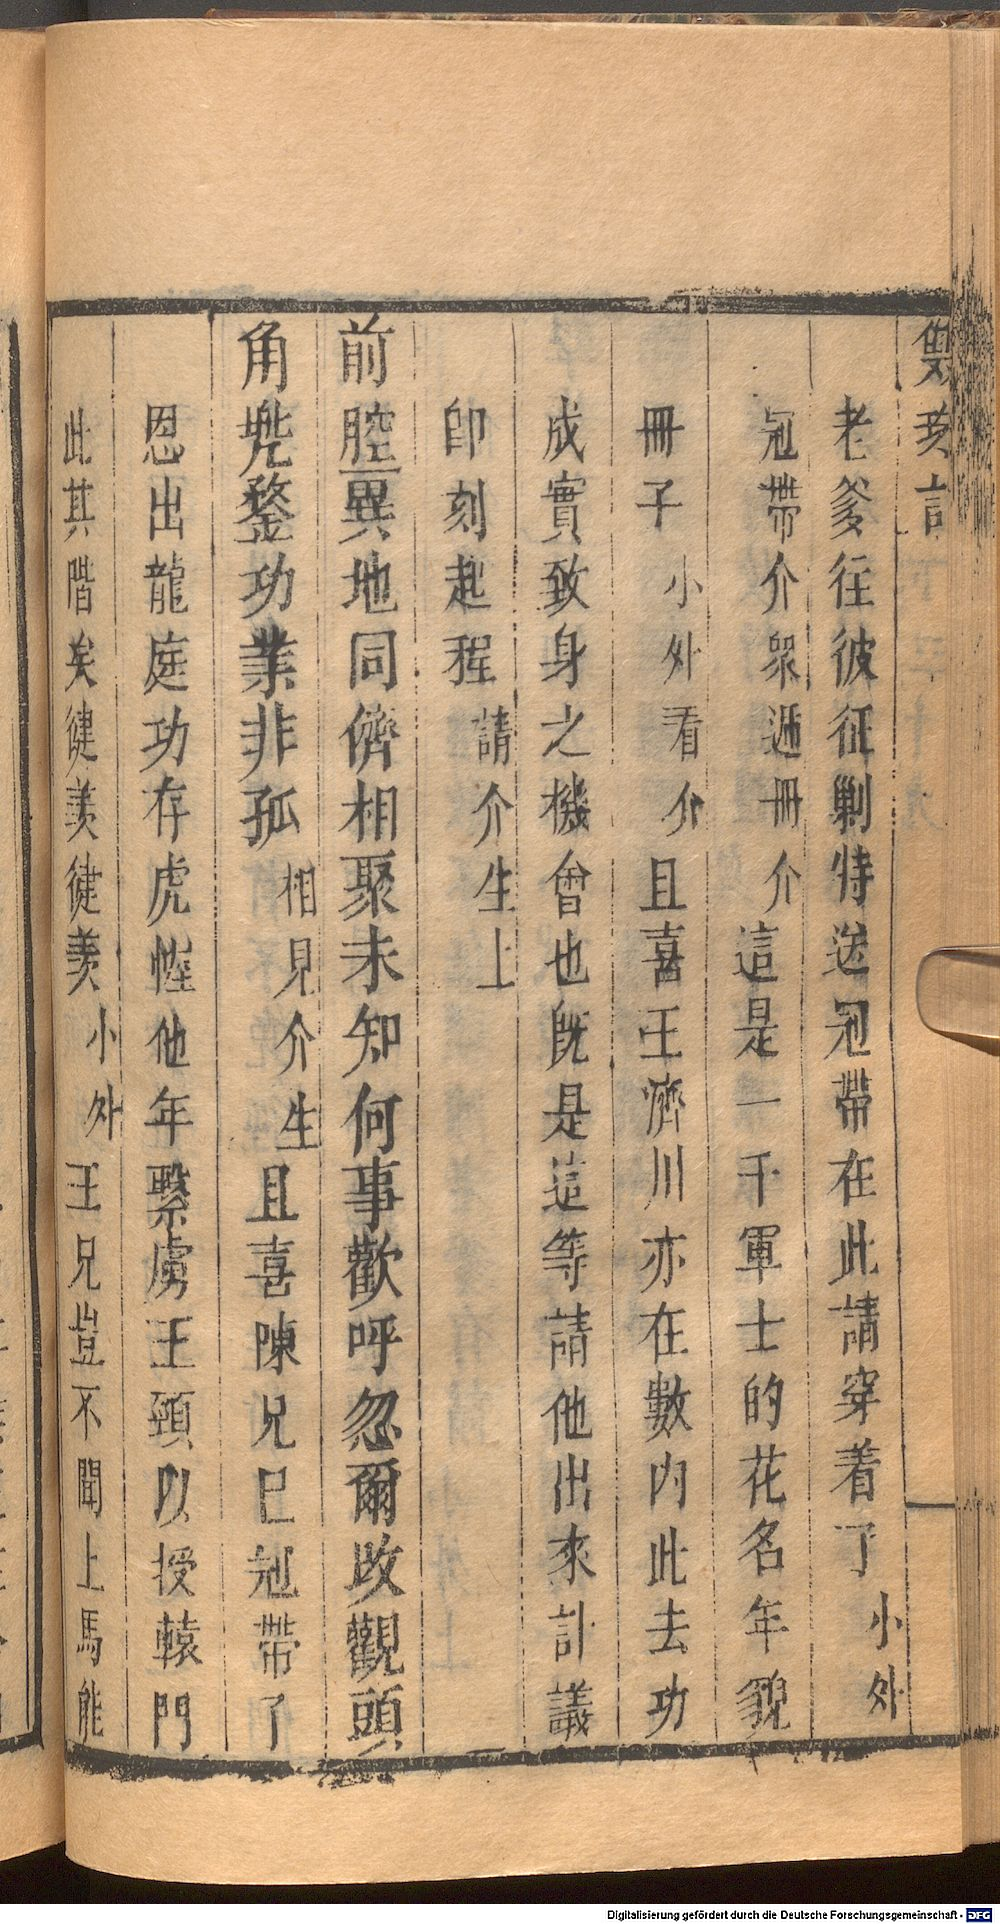 老爹往彼征剿特送冠帶在此請穿着了小外
冠帶介衆遞冊介這是一千軍士的花名年貌
冊子小外看介且喜王濟川亦在數內此去功
成實致身之機會也旣是這等請他出來計議
卽刻起程請介生上
前腔異地同儕相聚未知何事歡呼忽爾改觀頭
角兠鍪功業非孤相見介生且喜陳兄已冠帶了
恩出龍庭功存虎幄他年繫虜王頸以授轅門
此其階矣健羨健羨小外王兄豈不聞上馬能
Digitalisierung gefördert durch die Deutsche Forschungsgemeinschaft - DFG